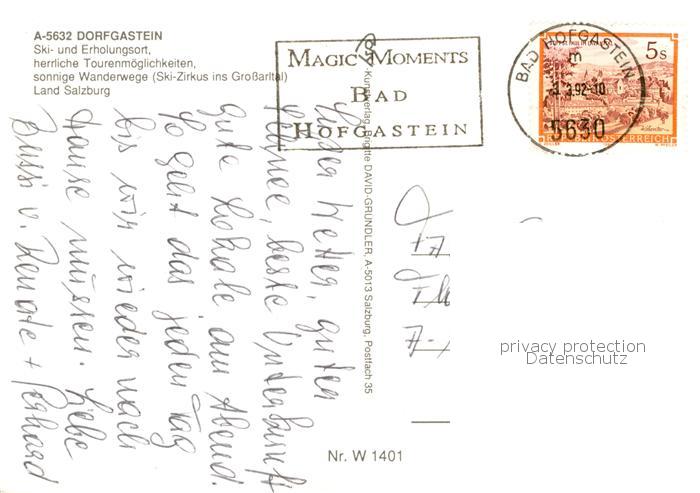 A-5632 DORFGASTEIN
Ski- und Erholungsort,
herrliche Tourenmöglichkeiten,
sonnige Wanderwege (Ski-Zirkus ins Großarltal)
Land Salzburg
MAGIC MOMENTS
BAD
HOFGASTEIN
BAD HOFGASTEIN
3.92-10
5630
5s
REPUBLIK ÖSTERREICH
Kunstverlag Brigitte DAVID-GRUNDLER, A-5013 Salzburg, Postfach 35
Wetter, guten
Schnee, beste Unterkunft
Gute Lokale am Abend.
So geht das jeden Tag
bis wir wieder nach
Hause müssen. Liebe
Bussi v. Renate + Gerhard
privacy protection
Datenschutz
Nr. W 1401